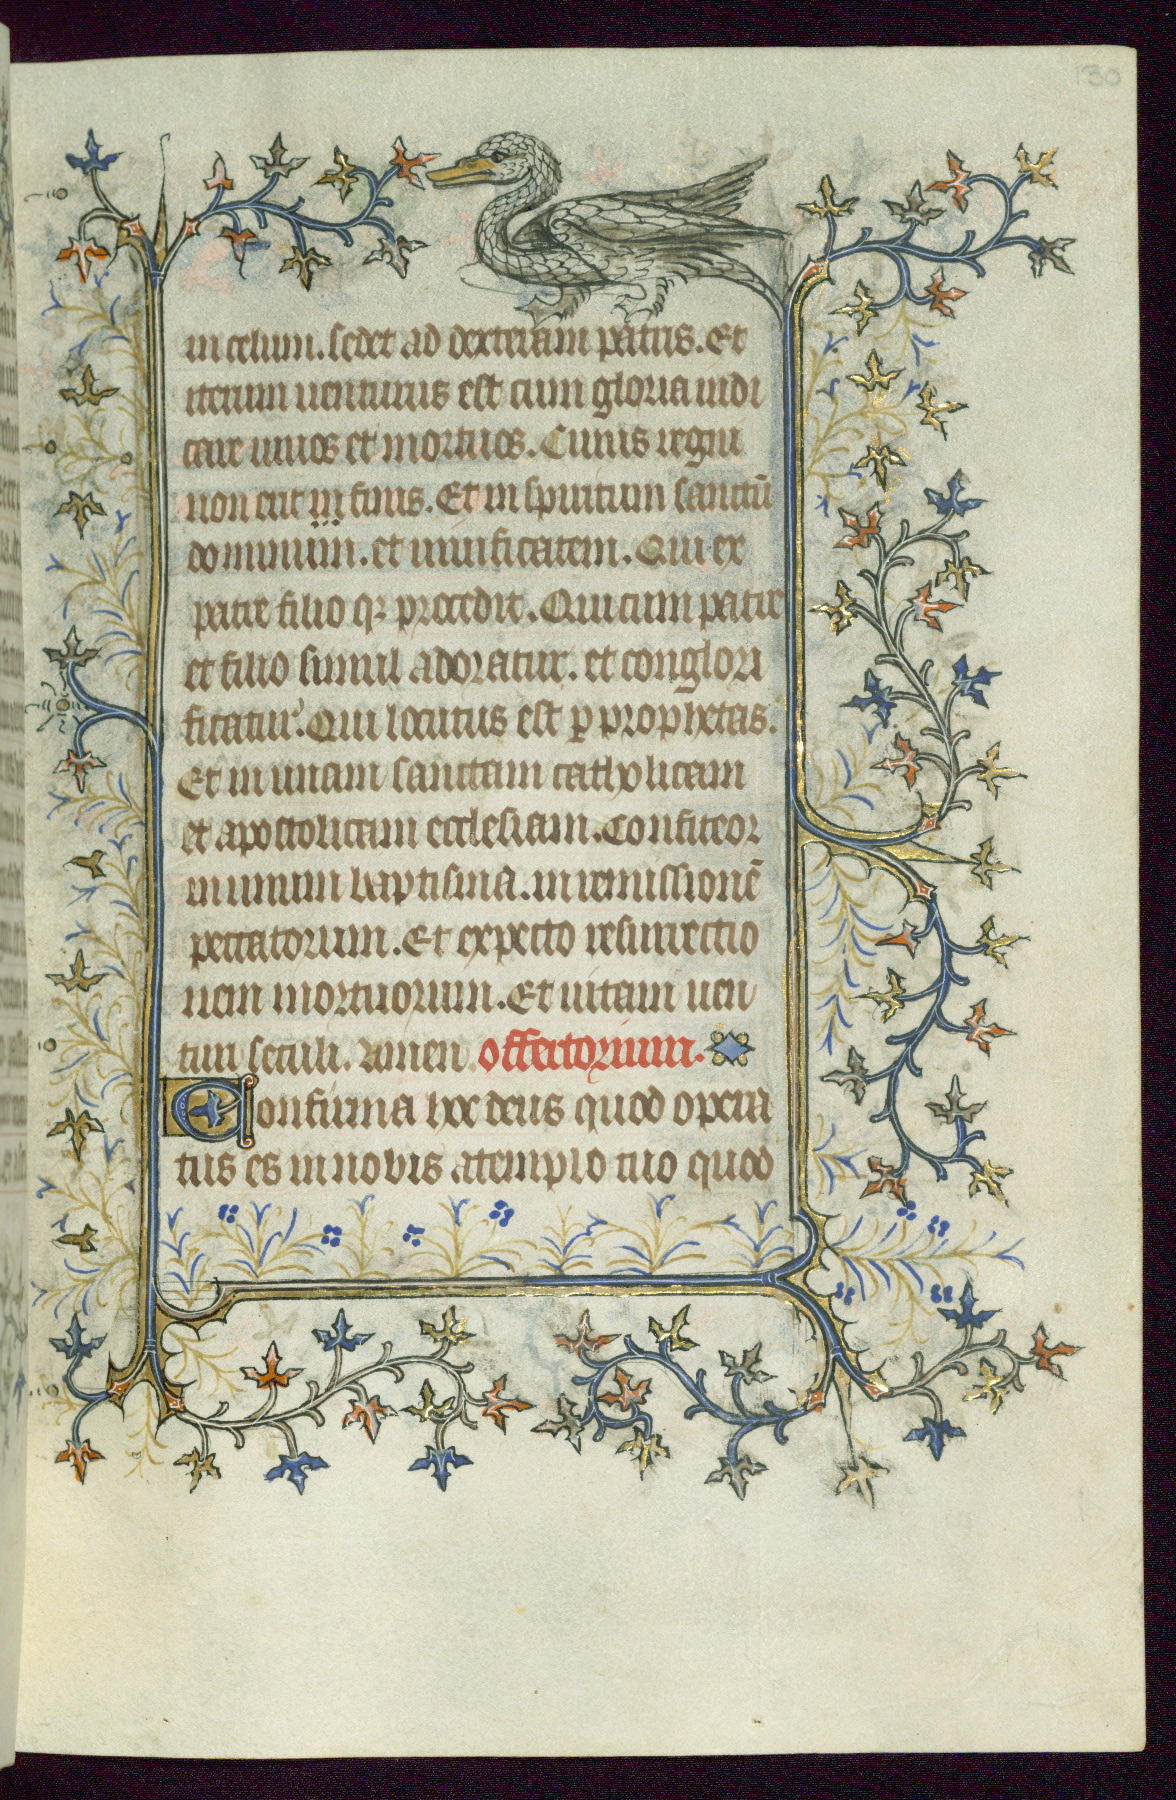 130
in celum. sedet ad dexteram patris. Et
iterum uenturus est cum gloria iudi
care uiuos et mortuos. Cuius regni
non erit in finis. Et in spiritum sanctū
dominum. et uiuificatem. Qui ex
patre filio qꝫ procedit. Qui cum patre
et filio simul adoratur. et conglori
ficatur. Qui locutus est ꝑ prophetas.
Et in unam sanctam catholicam
et apostolicam ecclesiam. Confiteor
in unum baptisma. in remissionē
peccatorum. Et expecto resurrectio
nem mortuorum. Et uitam uen
turi seculi. amen. offertorium.
Confirma hoc deus quod opera
tus es in nobis atemplo tuo quod